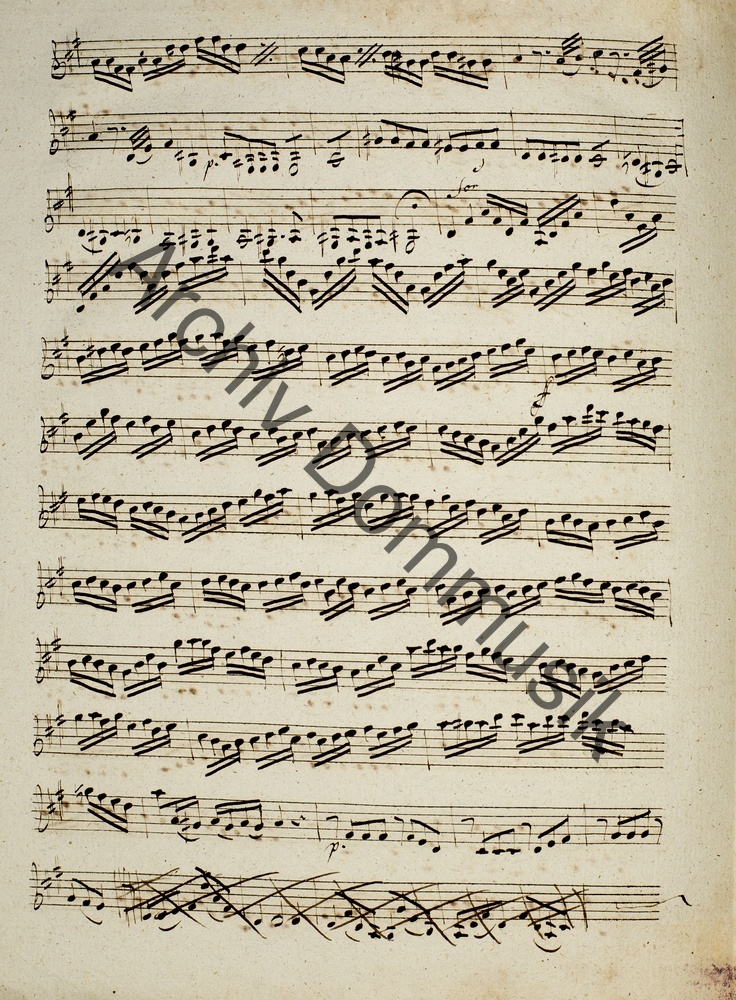 p.
for
f
Archiv Dommusik
p.